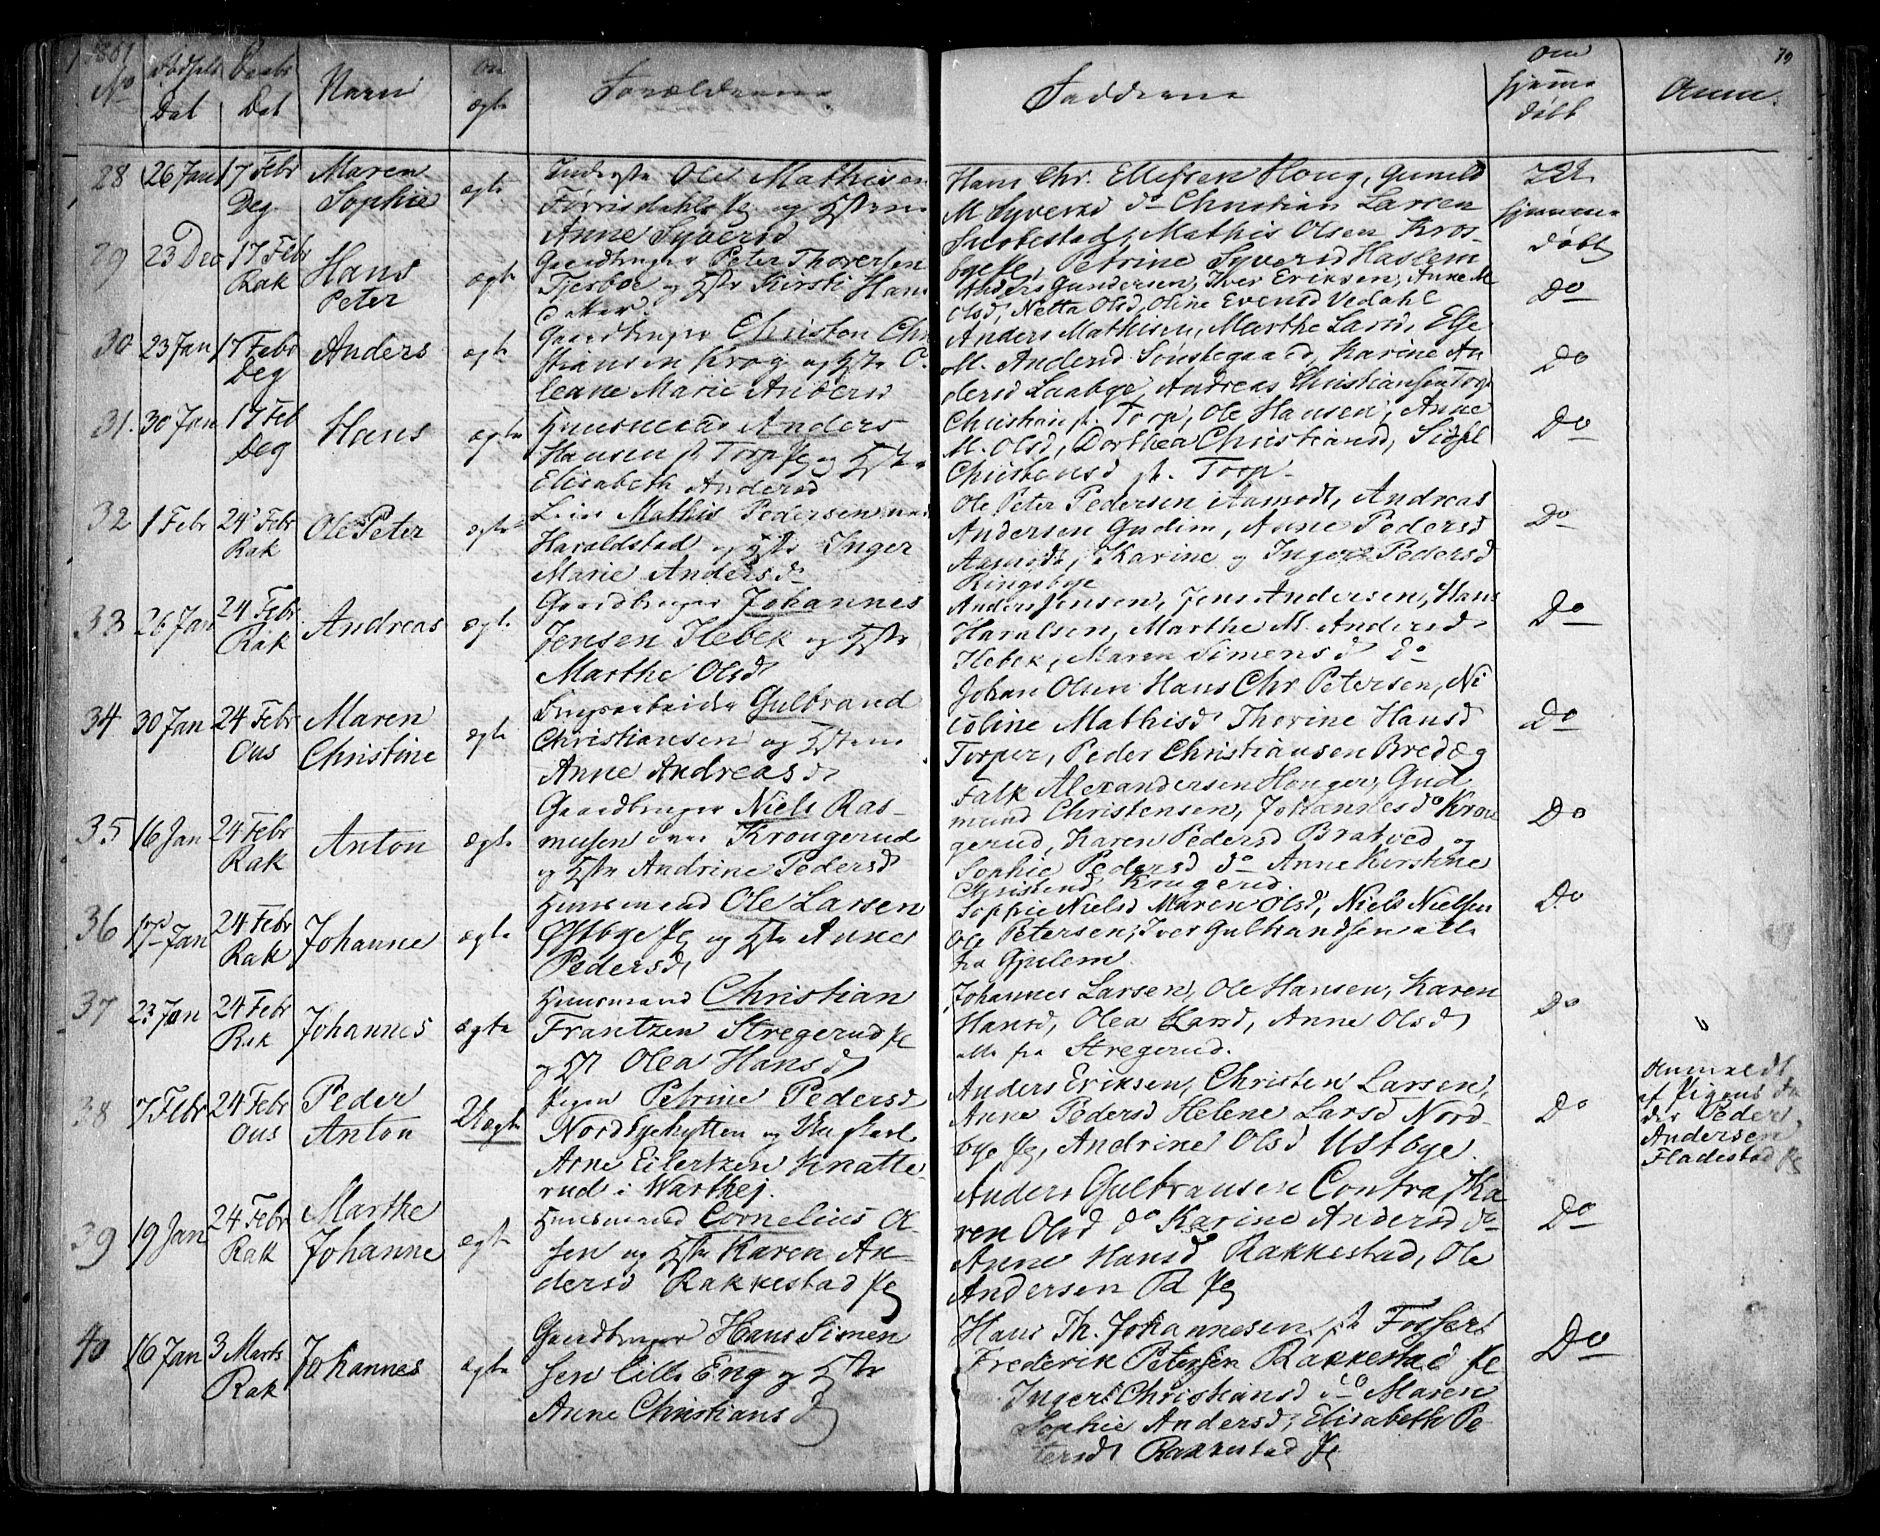 1861
No
Fødsels
Dat
Daabs
Dat
Navn
om
ægte
Forældrene
Fadderne
om
hjemme
døbt
Anm.
70
28 26 Jan 17 Febr
Deg
Maren
Sophie
ægte
Inderste Ole Mathisen
Førrisdahls Eje og Hstru
Anne Syversd
Hans Chr. Ellefsen Houg, Gunild
M Syversd do Christian Larsen
Mathis Olsen Kros-
bye Eje, Petrine Syversd Haslem
hjemme
døbt
29 23 Dec 17 Febr
Rak
Hans
Peter
ægte
Gaardbruger Peter Thoresen
Fjesboe og Hstr Kirsti Hans
datter.
Anders Gundersen, Iver Eriksen, Anne M
Olsd, Netta Olsd, Oline Evensd Vedahl
Do
30 23 Jan 17 Febr
Deg
Anders
ægte
Gaardbruger Christen Chri
stiansen Krog og Hstr O-
leane Marie Andersd
Anders Mathisen, Marthe Larsd, Else
M. Andersd Sønstegaard, Karine An
dersd Laabye, Andreas Christiansen Torp
Do
31. 30 Jan 17 Feb
Deg
Hans
ægte
Huusmand Anders
Hansen st Torp Eje og Hstr
Elisabeth Andersd
Christian st. Torp, Ole Hansen, Anne
M. Olsd, Dorthea Christiansd, Sidsel
Christensd st. Torp.
Do
32 1 Febr 24 Febr
Rak
Ole Peter
ægte
Mathis Pedersen
Haraldstad og Hstr Inger
Marie Andersd
Ole Peter Pedersen Aamodt, Andreas
Andersen Gudim, Anne Pedersd
Aamodt, Karine og Inger Pedersd
Ringsbye
Do
33 26 Jan 24 Febr
Rak
Andreas
ægte
Gaardbruger Johannes
Jensen Hebek og Hstr
Marthe Olsd
Anders Jensen, Jens Andersen, Hans
Haralsen, Marthe M. Andersd
Hebek, Maren Simensd do
Do
34 30 Jan 24 Febr
Ous
Maren
Christine
ægte
Brugsarbeider Gulbrand
Christiansen og Hstru
Anne Andreasd
Johan Olsen Hans Chr Petersen, Ni
coline Mathisd Thorine Hansd
Torper, Peder Christiansen Bredeg
Do
35 16 Jan 24 Febr
Rak
Anton
ægte
Gaardbruger Niels Ras-
musen Krougerud
og Hstr Andrine Pedersd
Falk Alexandersen Houger, Gud
mund Christensen, Johannes do Krou
gerud, Karen Pedersd Bratved og
Sophie Pedersd do Anne Kirstine
Christensd Krugerud.
Do
36 Jan 24 Febr
Rak
Johanne
ægte
Huusmand Ole Larsen
Østbye Eje og Hstr Anne
Pedersd
Sophie Nielsd Maren Olsd, Niels Nielsen
Ole Petersen, Iver Gulbrandsen alle
fra Gjulem.
Do
37 23 Jan 24 Febr
Rak
Johannes
ægte
Huusmand Christian
Frantzen Stregerud Eje
og Hst Olea Hansd
Johannes Larsen, Ole Hansen, Karen
Hansd, Olea Larsd, Anne Olsd
alle fra Stregerud.
Do
38 7 Febr 24 Febr
Ous
Peder
Anton
Uægte
Pigen Petrine Pedersd
Nordbyehytten og Ungkarl
Arne Eilertzen Knatte
rud i Warthej.
Anders Eriksen, Christen Larsen,
Anne Pedersd Helene Larsd Nord-
bye Eje, Andrine Olsd Ustbye.
Do
Anmeldt
af Pigens
Peder
Andersen
Fladestad Eje
39 19 Jan 24 Febr
Rak
Marthe
Johanne
ægte
Huusmand Cornelius Ol
sen og Hstr Karen An-
dersd Rakkestad Eje
Anders Gulbransen Contra, Ka
ren Olsd do Karine Andersd do
Anne Hansd Rakkestad, Ole
Andersen Rd Eje
Do
40 16 Jan 3 Marts
Rak
Johannes
ægte
Gaardbruger Hans Simen
sen Lille Eng og Hstr
Anne Christiansd
Hans Th. Johannesen st Fosser
Frederik Petersen Rakkestad Eje
Inger Christiansd do Maren
Sophie Andersd, Elisabeth Pe
tersdt Rakkestad Eje
Do